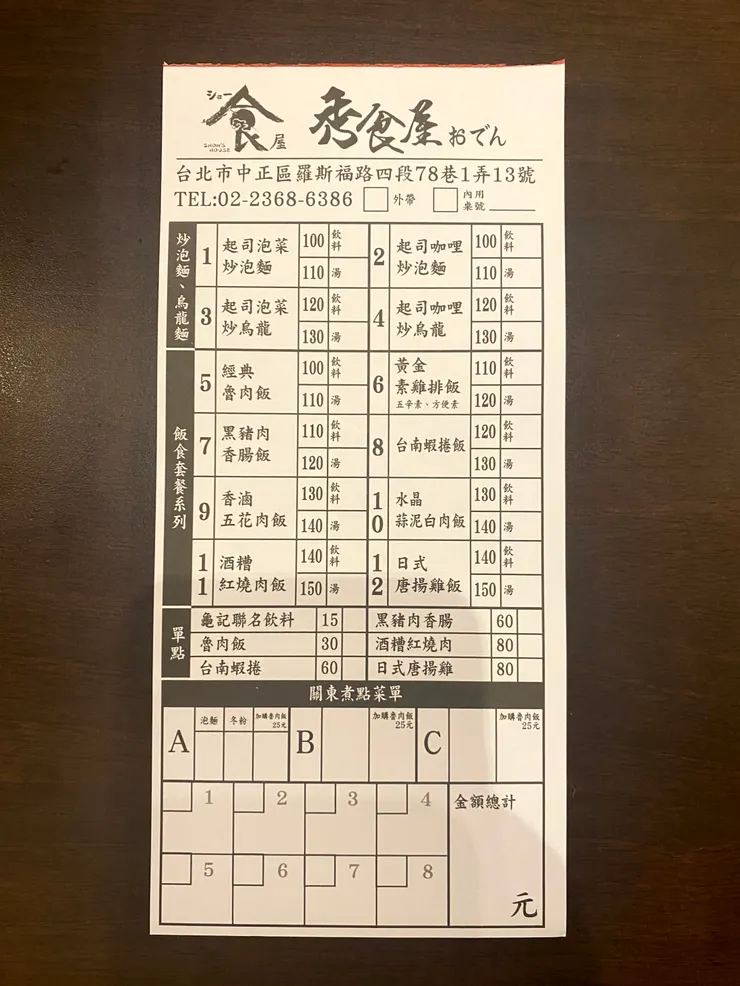 ショー
食屋
SHOW'S
HOUSE
秀食屋おでん
台北市中正區羅斯福路四段78巷1弄13號
TEL:02-2368-6386 外帶 內用
桌號
炒泡麵、烏龍麵
1 起司泡菜
炒泡麵
100 飲料
110 湯
2 起司咖哩
炒泡麵
100 飲料
110 湯
3 起司泡菜
炒烏龍
120 飲料
130 湯
4 起司咖哩
炒烏龍
120 飲料
130 湯
飯食套餐系列
5 經典
魯肉飯
100 飲料
110 湯
6 黃金
素雞排飯
五辛素、方便素
110 飲料
120 湯
7 黑豬肉
香腸飯
110 飲料
120 湯
8 台南蝦捲飯
120 飲料
130 湯
9 香滷
五花肉飯
130 飲料
140 湯
10 水晶
蒜泥白肉飯
130 飲料
140 湯
11 酒糟
紅燒肉飯
140 飲料
150 湯
12 日式
唐揚雞飯
140 飲料
150 湯
單點
龜記聯名飲料 15 黑豬肉香腸 60
魯肉飯 30 酒糟紅燒肉 80
台南蝦捲 60 日式唐揚雞 80
關東煮點菜單
A 泡麵 冬粉 加購魯肉飯
25元
B 加購魯肉飯
25元
C 加購魯肉飯
25元
1 2 3 4 金額總計
5 6 7 8
元